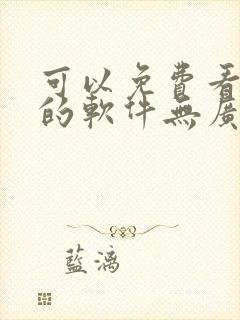 可以免費看
的軟件無廣
藍漓